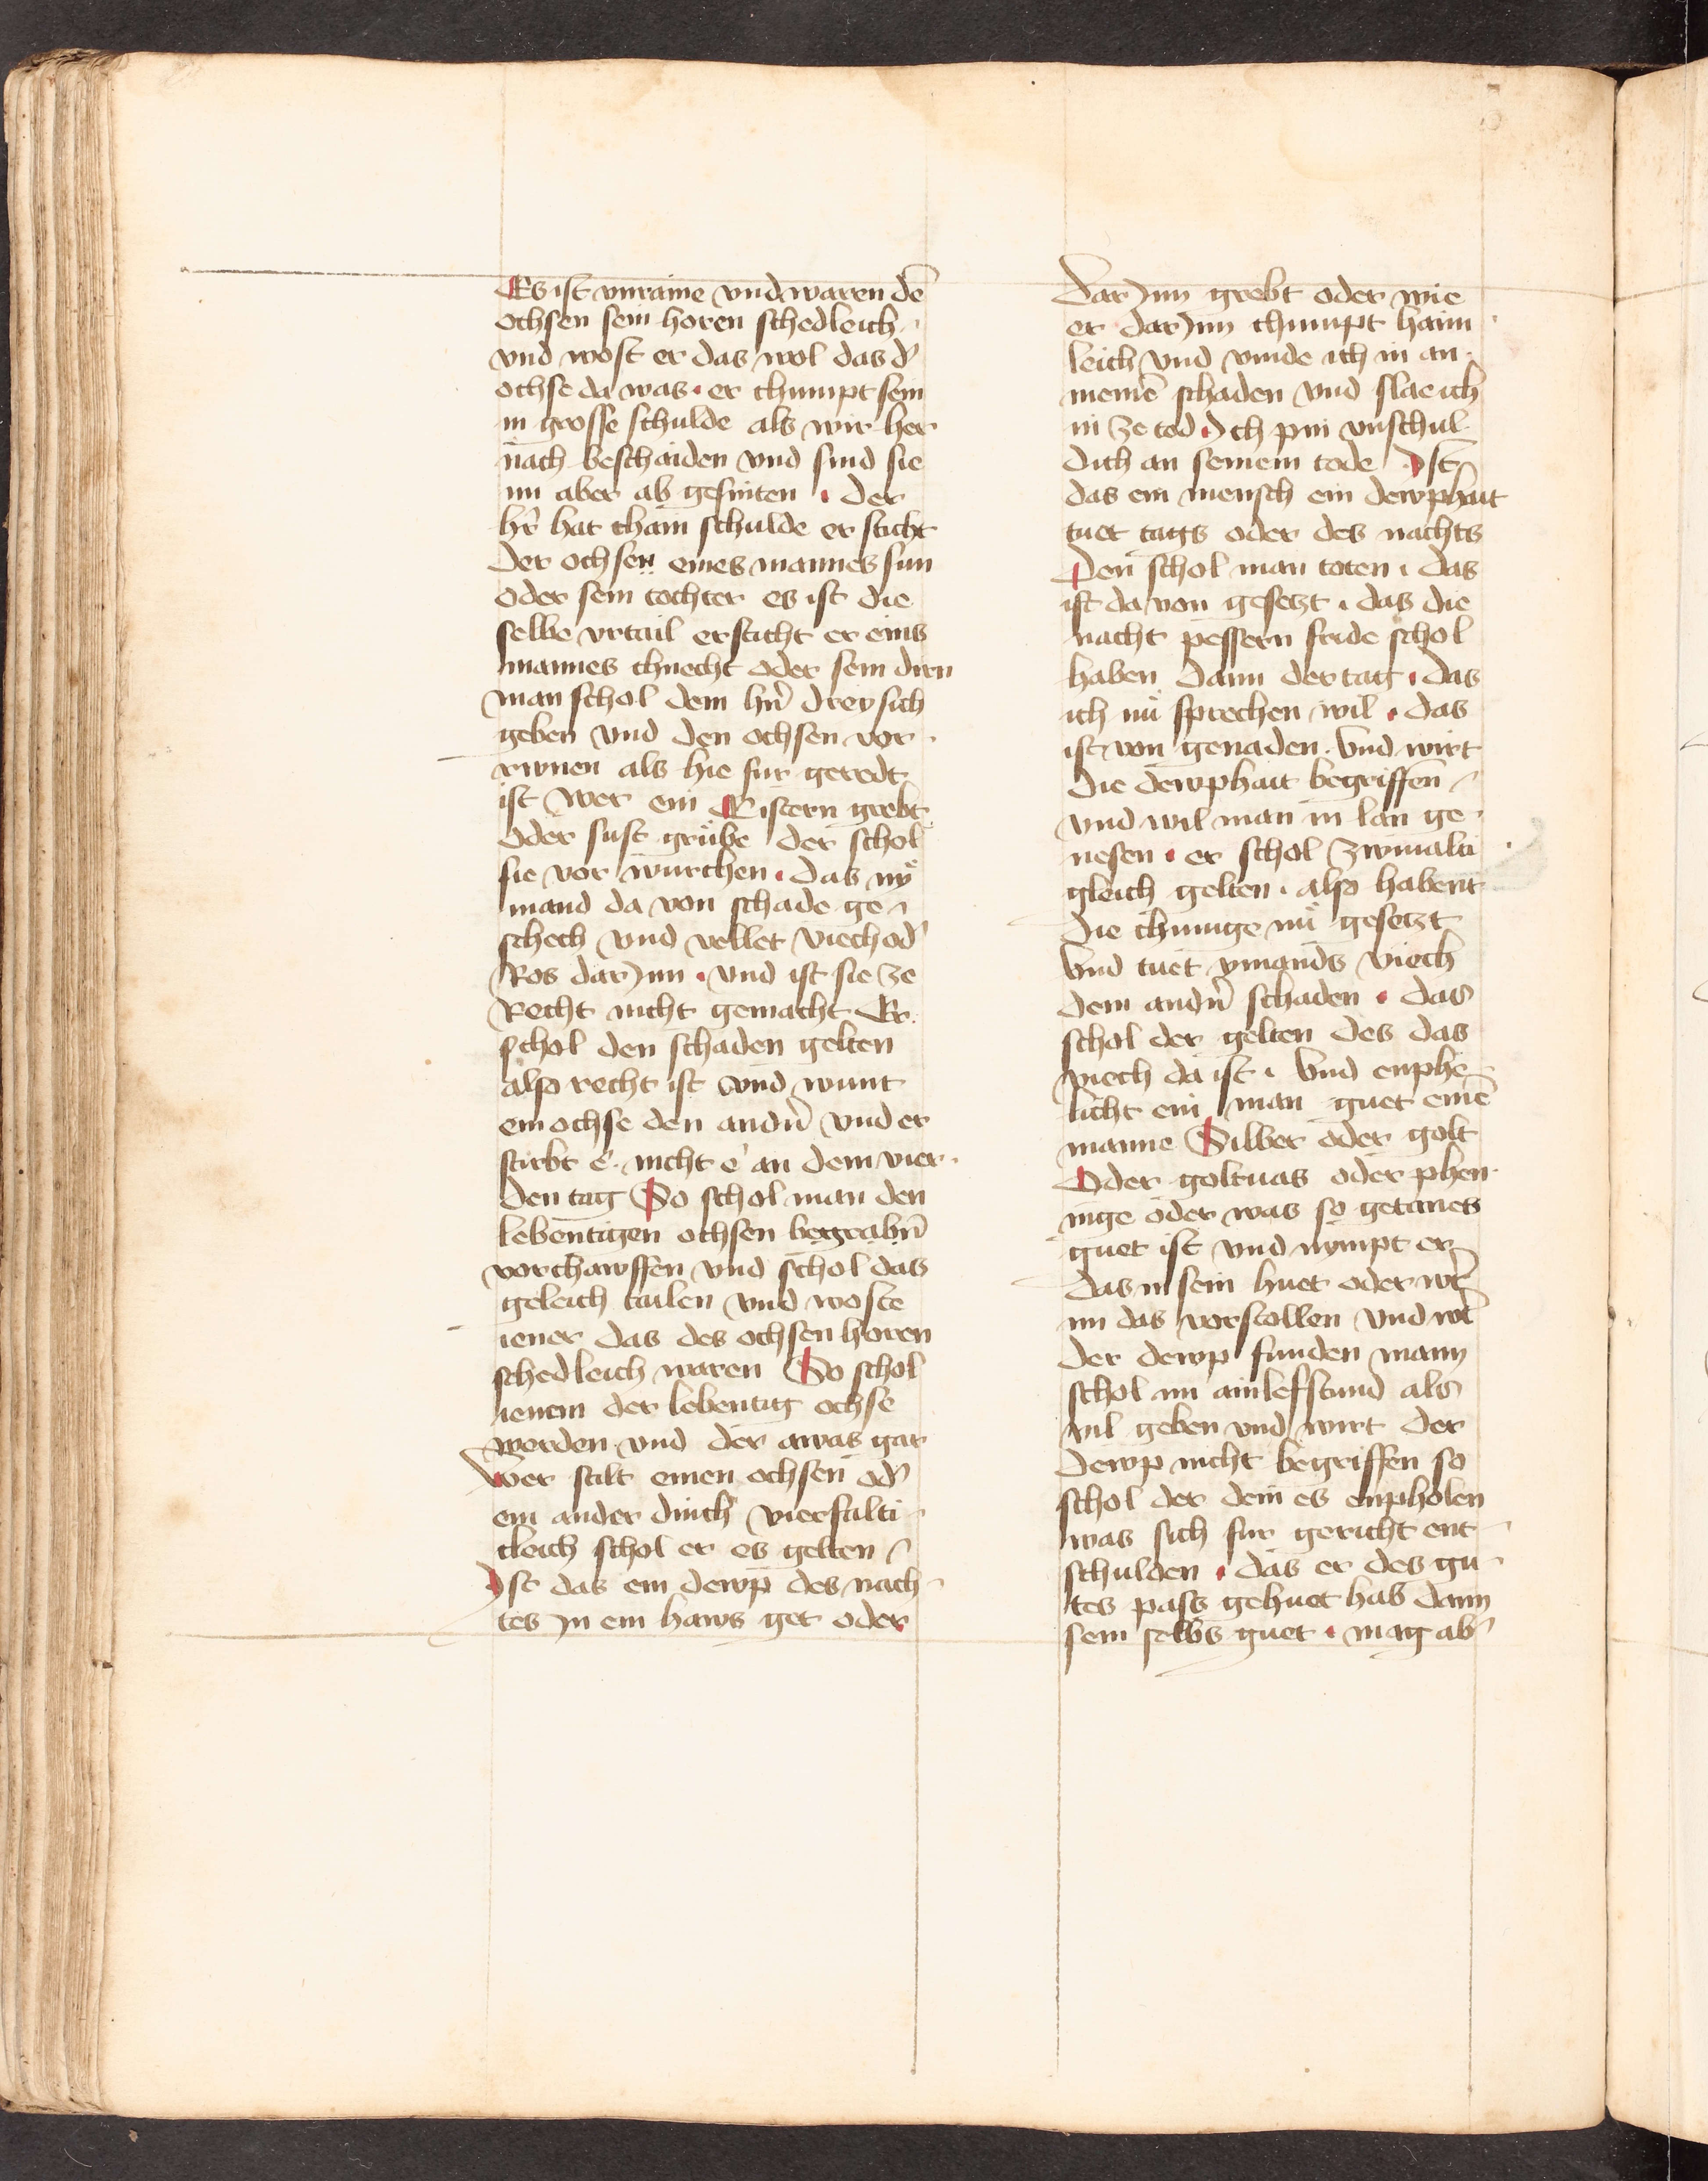 Es ist vnraine vnd waren dē
ochsen sein horen schedleich
vnd wost er das wol das d'
ochse da was · er chumpt sein
in grosse schulde als wir her
nach beschaiden vnd sind sie
im aber ab gesniten · der
hr̄ hat chain schulde er sticht
der ochsen eines mannes sun
oder sein tochter es ist die
selbe vrtail ersticht er eins
mannes chnecht oder sein dirn
man schol dem hr̄n dreysich
geben vnd den ochsen vor
als hie fur geredt
ist wer ein Cistern grebt
oder sust grube der schol
sie vor wurchen · das ny
mand da von schade ge
schech vnd vellet viech od'
Ros darjnn · vnd ist sie ze
Recht nicht gemacht Er
schol den schaden gelten
also recht ist vnd wunt
ein ochse den andn̄ vnd er
stirbt e · nicht e an dem vier
den tag So schol man den
lebentigen ochsen begrabn̄
vorchawffen vnd schol das
geleich tailen vnd woste
iener das des ochsen horen
schedleich waren So schol
ienem der lebentig ochse
werden vnd der awas gar
wer stilt einen ochsen od'
ein ander dinch vierfalti
cleich schol er es gelten
Ist das ein dewp des nach
tes jn ein haws get oder
darjnn grebt oder wie
er darjnn chumpt haim
leich vnd vinde ich in an
meinē schaden vnd slae ich
in ze tod Ich pin vnschul
dich an seinem tode Ist
das ein mensch ein dewphait
tuet tags oder des nachts
Den schol man toten · das
ist da von gesetzt · das die
nacht pessern fride schol
haben dann der tag · das
ich nu sprechen wil · das
ist von genaden · vnd wirt
die dewphait begriffen
vnd wil man in lan ge
nesen · er schol zwiualti
gleich gelten · also habent
die chunige nu gesetzt
vnd tuet ymands viech
dem andn̄ schaden · das
schol der gelten des das
viech da ist · vnd enphe
licht ein man guet einē
manne Silber oder golt
Oder goltuas oder phen
nige oder was so getanes
guet ist vnd nympt er
das in sein huet oder
im das vorstollen vnd
der dewp funden mann
schol im ainlefstund als
vil geben vnd wirt der
dewp nicht begriffen so
schol der dem es enpholen
was sich fur gericht ent
schulden · das er des gu
tes pass gehuet hab dann
sein selbs guet · mag ab'